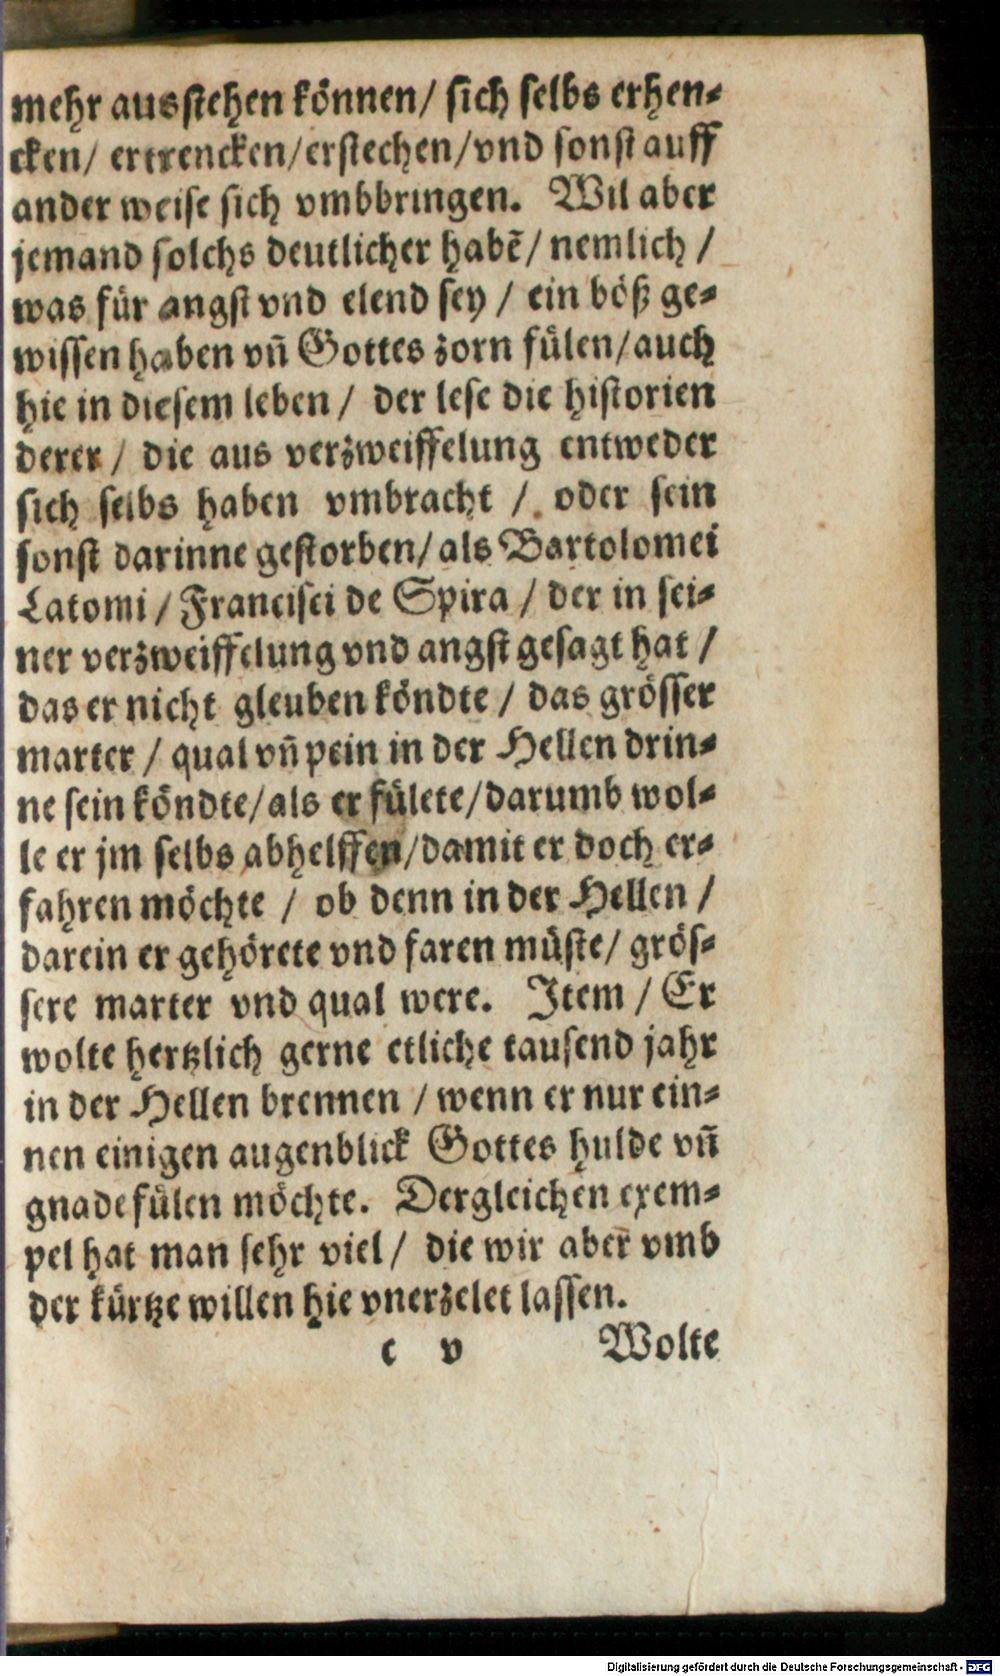 mehr ausstehen können/ sich selbs erhen-
cken/ ertrencken/erstechen/vnd sonst auff
ander weise sich vmbbringen. Wil aber
jemand solchs deutlicher habē/ nemlich /
was für angst vnd elend sey / ein böß ge-
wissen haben vñ Gottes zorn fülen/auch
hie in diesem leben / der lese die historien
derer / die aus verzweiffelung entweder
sich selbs haben vmbracht / oder sein
sonst darinne gestorben/ als Bartolomei
Latomi / Francisci de Spira / der in sei-
ner verzweiffelung vnd angst gesagt hat /
das er nicht gleuben köndte / das grösser
marter / qual vñ pein in der Hellen drin-
ne sein köndte/als er fülete/darumb wol-
le er jm selbs abhelffen/damit er doch er-
fahren möchte / ob denn in der Hellen /
darein er gehörete vnd faren müste/ grös-
sere marter vnd qual were. Item / Er
wolte hertzlich gerne etliche tausend jahr
in der Hellen brennen / wenn er nur ein-
nen einigen augenblick Gottes hulde vñ
gnade fülen möchte. Dergleichen exem-
pel hat man sehr viel/ die wir aber vmb
der kürtze willen hie vnerzelet lassen.
c v Wolte
Digitalisierung gefördert durch die Deutsche Forschungsgemeinschaft - DFG